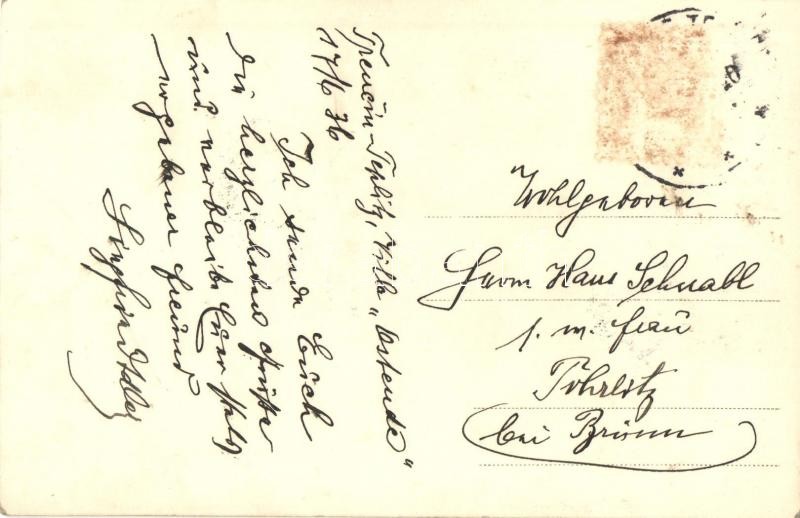 Trencin-Teplitz, Villa „Ostende“
17/6 36
Ich sende Euch
die herzlichsten Grüße
und verbleibe Euer stets
ergebener Freund
Siegfried Adler
Wohlgeboren
Herrn Hans Schnabl
s. w. Frau
Pohrlitz
bei Brünn